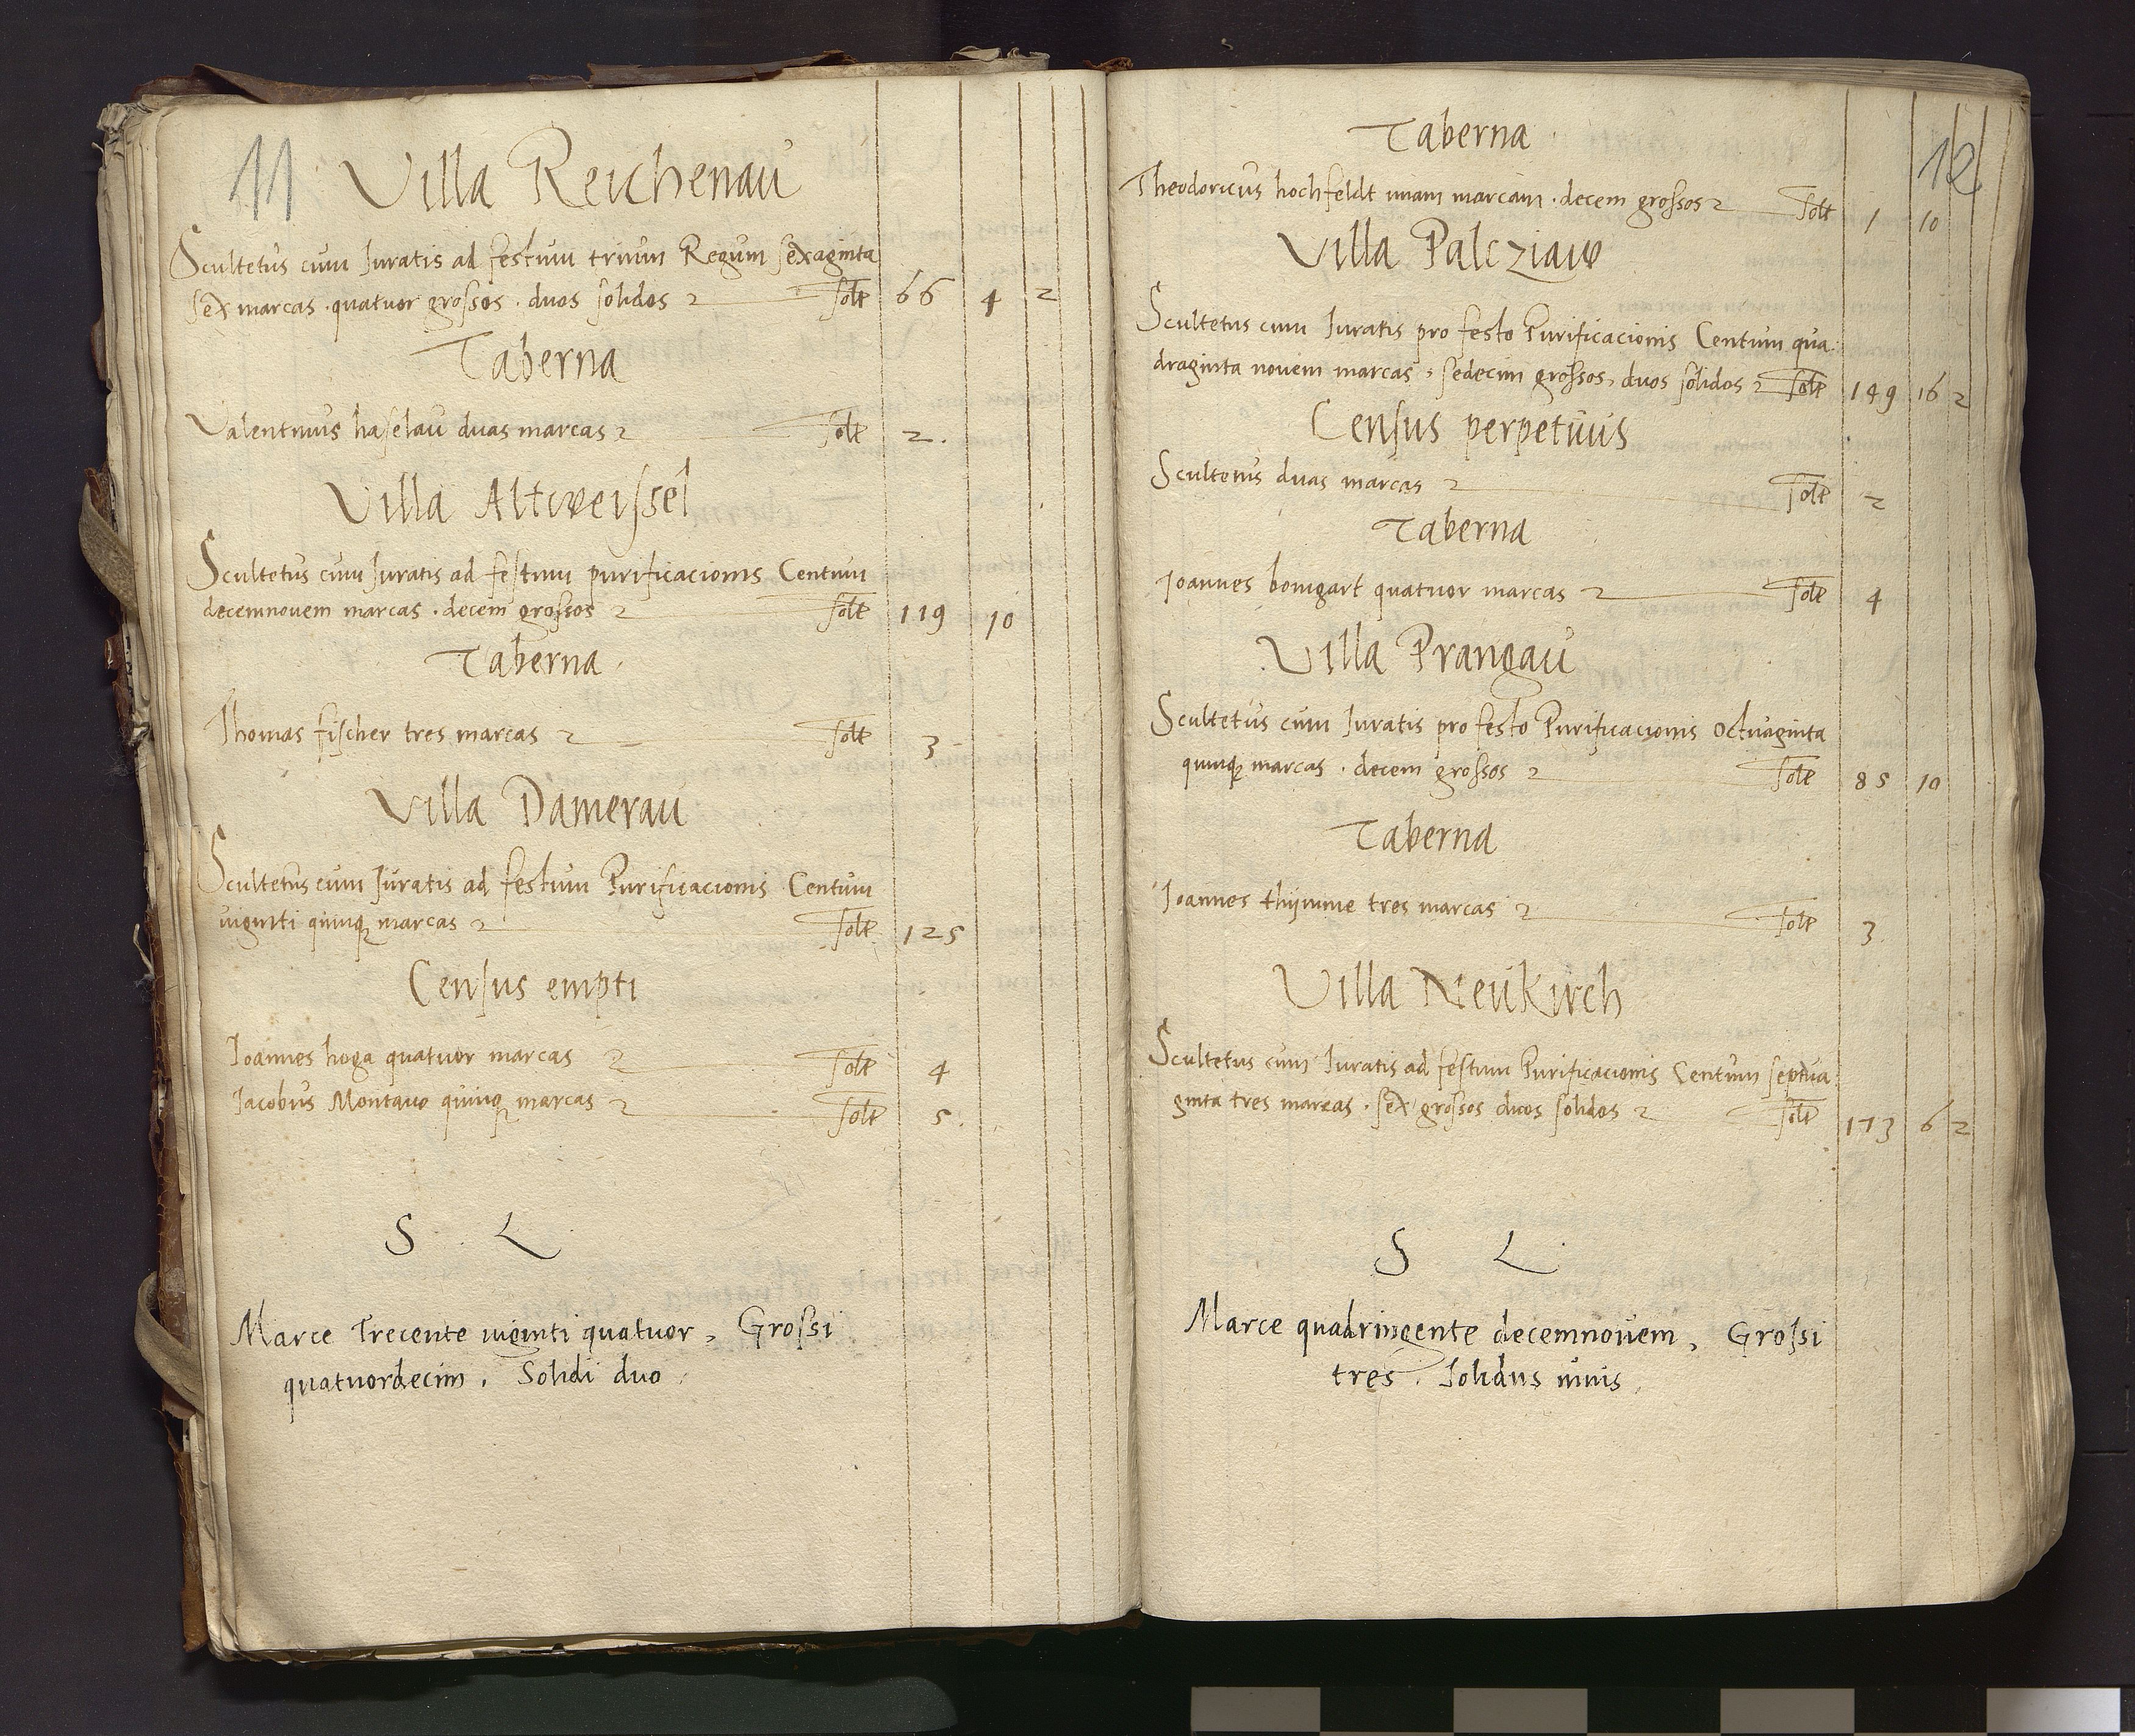 11
Villa Reichenau
Scultetus cum Juratis ad festum trium Regum sexaginta
sex marcas . quatuor grossos . duos solidos Solt 66 4 2
Taberna
Valentinus haselau duas marcas Solt 2.
Villa Altweissel
Scultetus cum Juratis ad festum purificacionis Centum
decemnovem marcas . decem grossos Solt 119 10
Taberna
Thomas fischer tres marcas Solt 3
Villa Damerau
Scultetus cum Juratis ad festum Purificacionis Centum
viginti quinq3 marcas Solt 125
Census empti
Joannes hoga quatuor marcas Solt 4
Jacobus Montauo quinq3 marcas Solt 5.
S L
Marce Trecente viginti quatuor, Grossi
quatuordecim, Solidi duo
12
Taberna
Theodoricus hochfeldt unam marcam . decem grossos Solt 1 10
Villa Palcziaw
Scultetus cum Juratis pro festo Purificacionis Centum qua
draginta novem marcas, sedecim grossos, duos solidos Solt 149 16 2
Census perpetuus
Scultetus duas marcas Solt 2
Taberna
Joannes bomgart quatuor marcas Solt 4
Villa Prangau
Scultetus cum Juratis pro festo Purificacionis octuaginta
quinq3 marcas . decem grossos Solt 85 10
Taberna
Joannes thymme tres marcas Solt 3
Villa Neukirch
Scultetus cum Juratis ad festum Purificacionis Centum septua
ginta tres marcas . sex grossos duos solidos Solt 173 6 2
S L
Marce quadringente decemnovem, Grossi
tres. Solidus unus